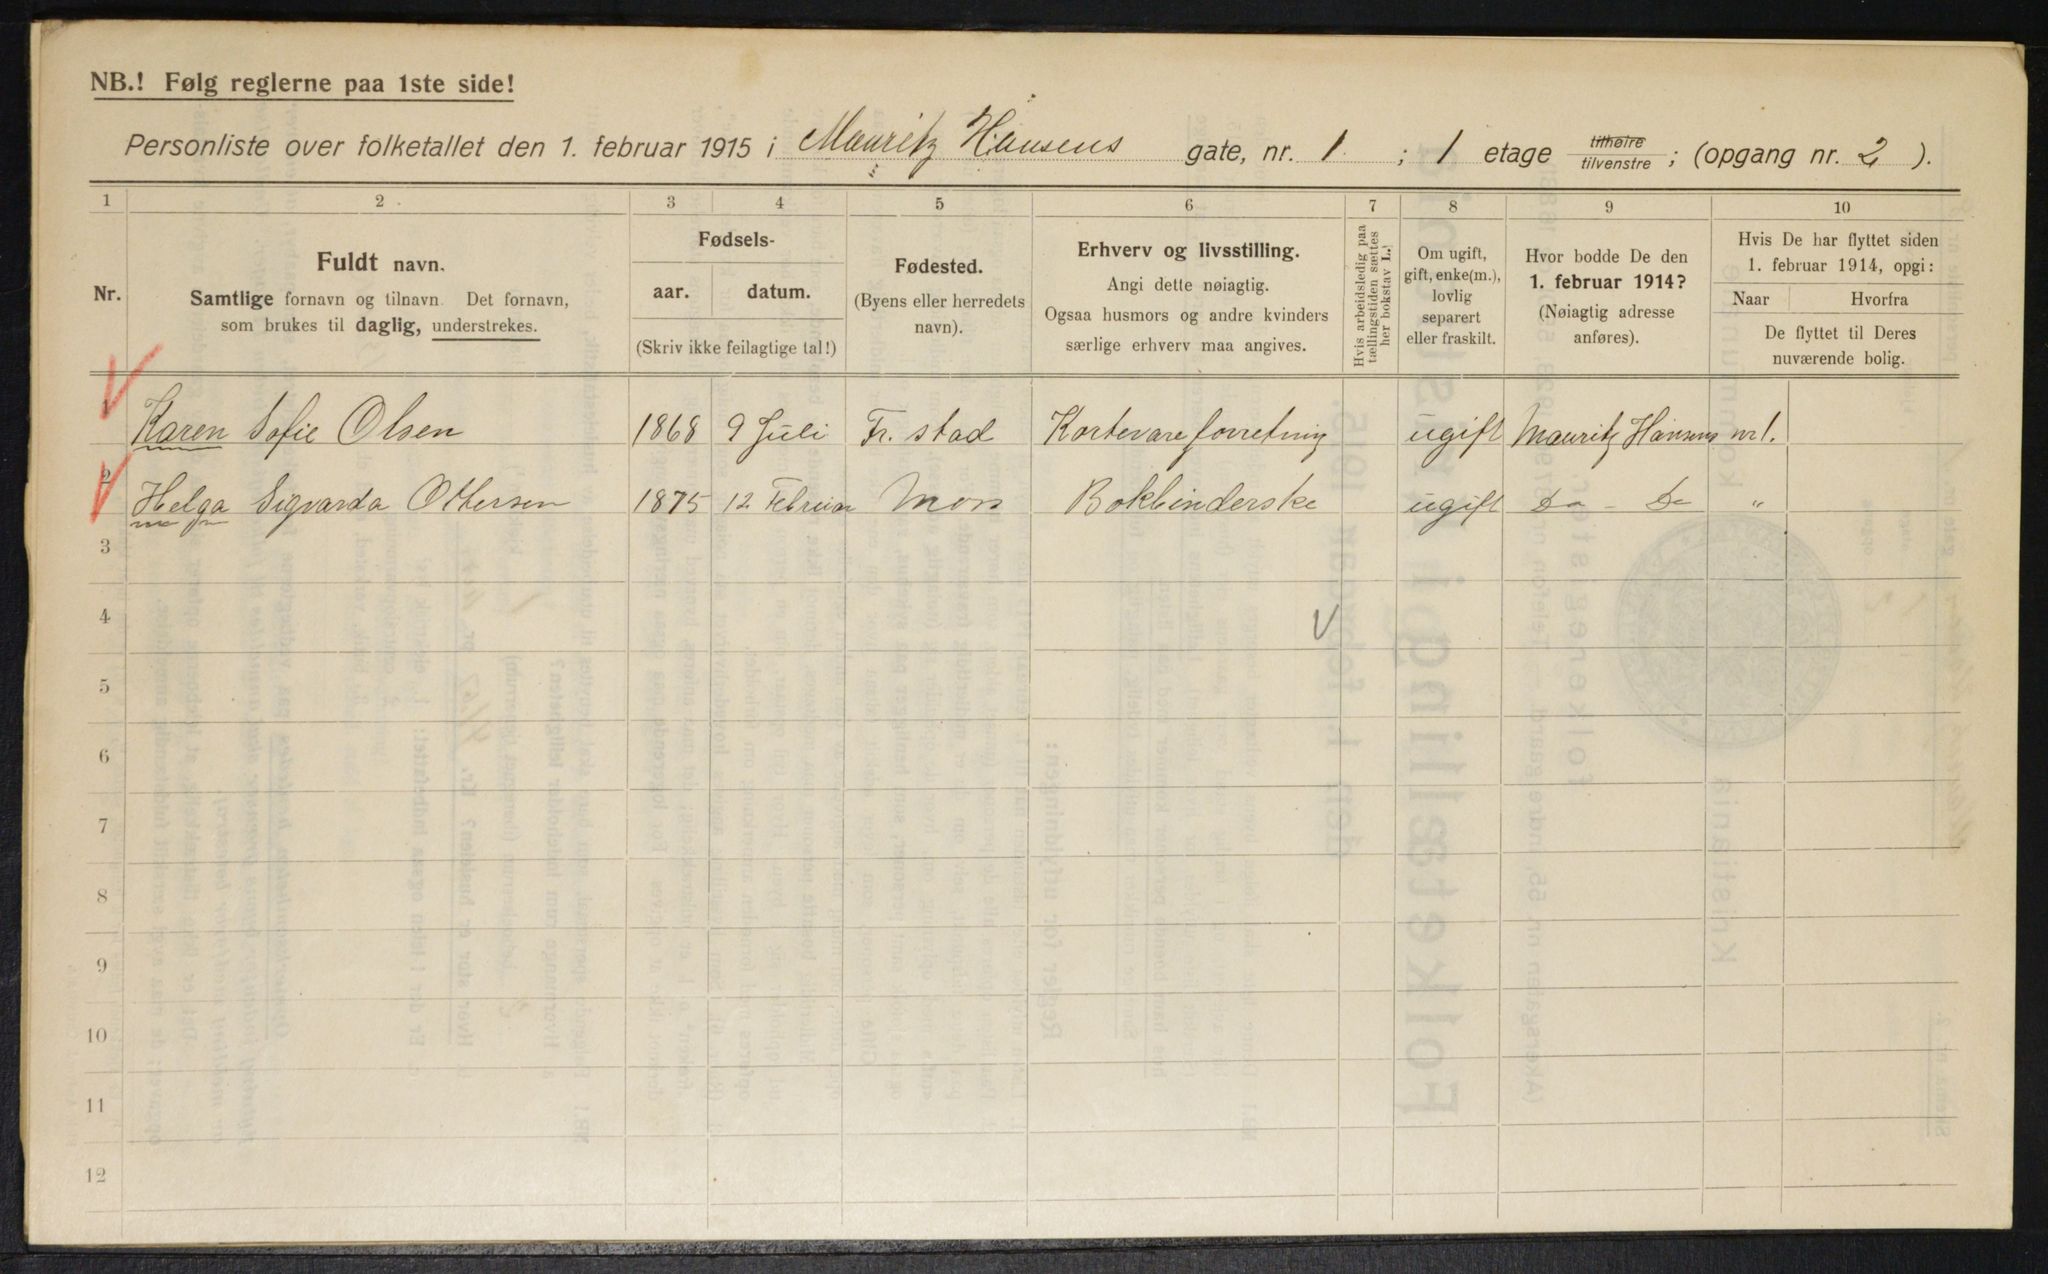 NB.! Følg reglerne paa 1ste side!
Personliste over folketallet den 1. februar 1915 i Mauritz Hansens gate, nr. 1 ; 1 etage tilhøire tilvenstre ; (opgang nr. 2 ).
1 2 3 4 5 6 7 8 9 10
Nr.
Fuldt navn.
Samtlige fornavn og tilnavn. Det fornavn,
som brukes til daglig, understrekes.
Fødsels-
aar. datum.
(Skriv ikke feilagtige tal!)
Fødested.
(Byens eller herredets
navn).
Erhverv og livsstilling.
Angi dette nøiagtig.
Ogsaa husmors og andre kvinders
særlige erhverv maa angives.
Hvis arbeidsledig paa
tællingstiden sættes
her bokstav L.!
Om ugift,
gift, enke(m.),
lovlig
separert
eller fraskilt.
Hvor bodde De den
1. februar 1914?
(Nøiagtig adresse
anføres).
Hvis De har flyttet siden
1. februar 1914, opgi:
Naar Hvorfra
De flyttet til Deres
nuværende bolig.
1 Karen Sofie Olsen 1868 9 Juli Fr. stad Kortevareforretning ugift Mauritz Hansens nr 1.
2 Helga Sigvarda Ottersen 1875 12 Februar Moss Bokbinderske ugift Do - Do "
3
4
5
6
7
8
9
10
11
12